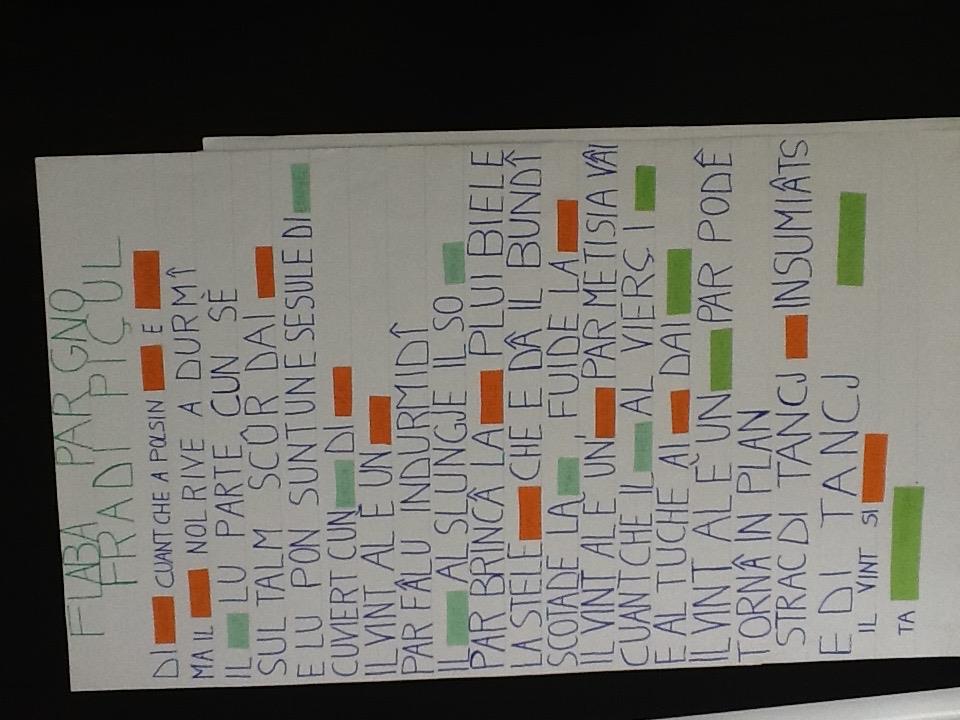 FLABA PAR GNO
FRADI PIÇUL
DI CUANT CHE A POLSIN E
MA IL NOL RIVE A DURMÎ
IL LU PARTE CUN SÈ
SUL TALM SCÛR DAI
E LU PON SUNTUNE SESULE DI
CUVIERT CUN DI
IL VINT AL È UN
PAR FÂLU INDURMIDÎ
IL AL SLUNGJE IL SO
PAR BRINCÂ LA PLUI BIELE
LA STELE CHE E DÂ IL BUNDÎ
SCOTADE LA FUIDE LA
IL VINT AL È UN' PAR METISI A VAÎ
CUANT CHE IL AL VIERÇ I
E AL TUCHE AI DAI
IL VINT AL È UN PAR PODÊ
TORNÂ IN PLAN
STRAC DI TANCJ INSUMIÂTS
E DI TANCJ
IL VINT SI
TA